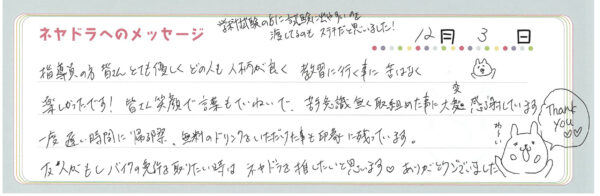 学科試験の前に試験に出やすい所を
渡してるのも ステキだと思いました!
ネヤドラへのメッセージ
12月 3日
指導員の方 皆さん とても優しく どの人も 人柄が良く 教習に行く事に 苦はなく
楽しかったです! 皆さん 笑顔で 言葉もていねいで、苦手意識 無く 取組めた事に 大変 感謝しています
一度 遅い時間に 帰る際、無料のドリンクをいただけた事も印象に残っています。
友人がもし バイクの免許を取りたい時は ネヤドラを 推したいと思います♡ ありがとうございました
Thank you ♡♡